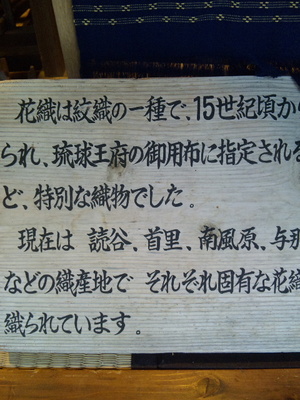 花織は紋織の一種で、15世紀頃か
られ、琉球王府の御用布に指定される
ど、特別な織物でした。
現在は 読谷、首里、南風原、与那
などの織産地で それぞれ固有な花織
織られています。